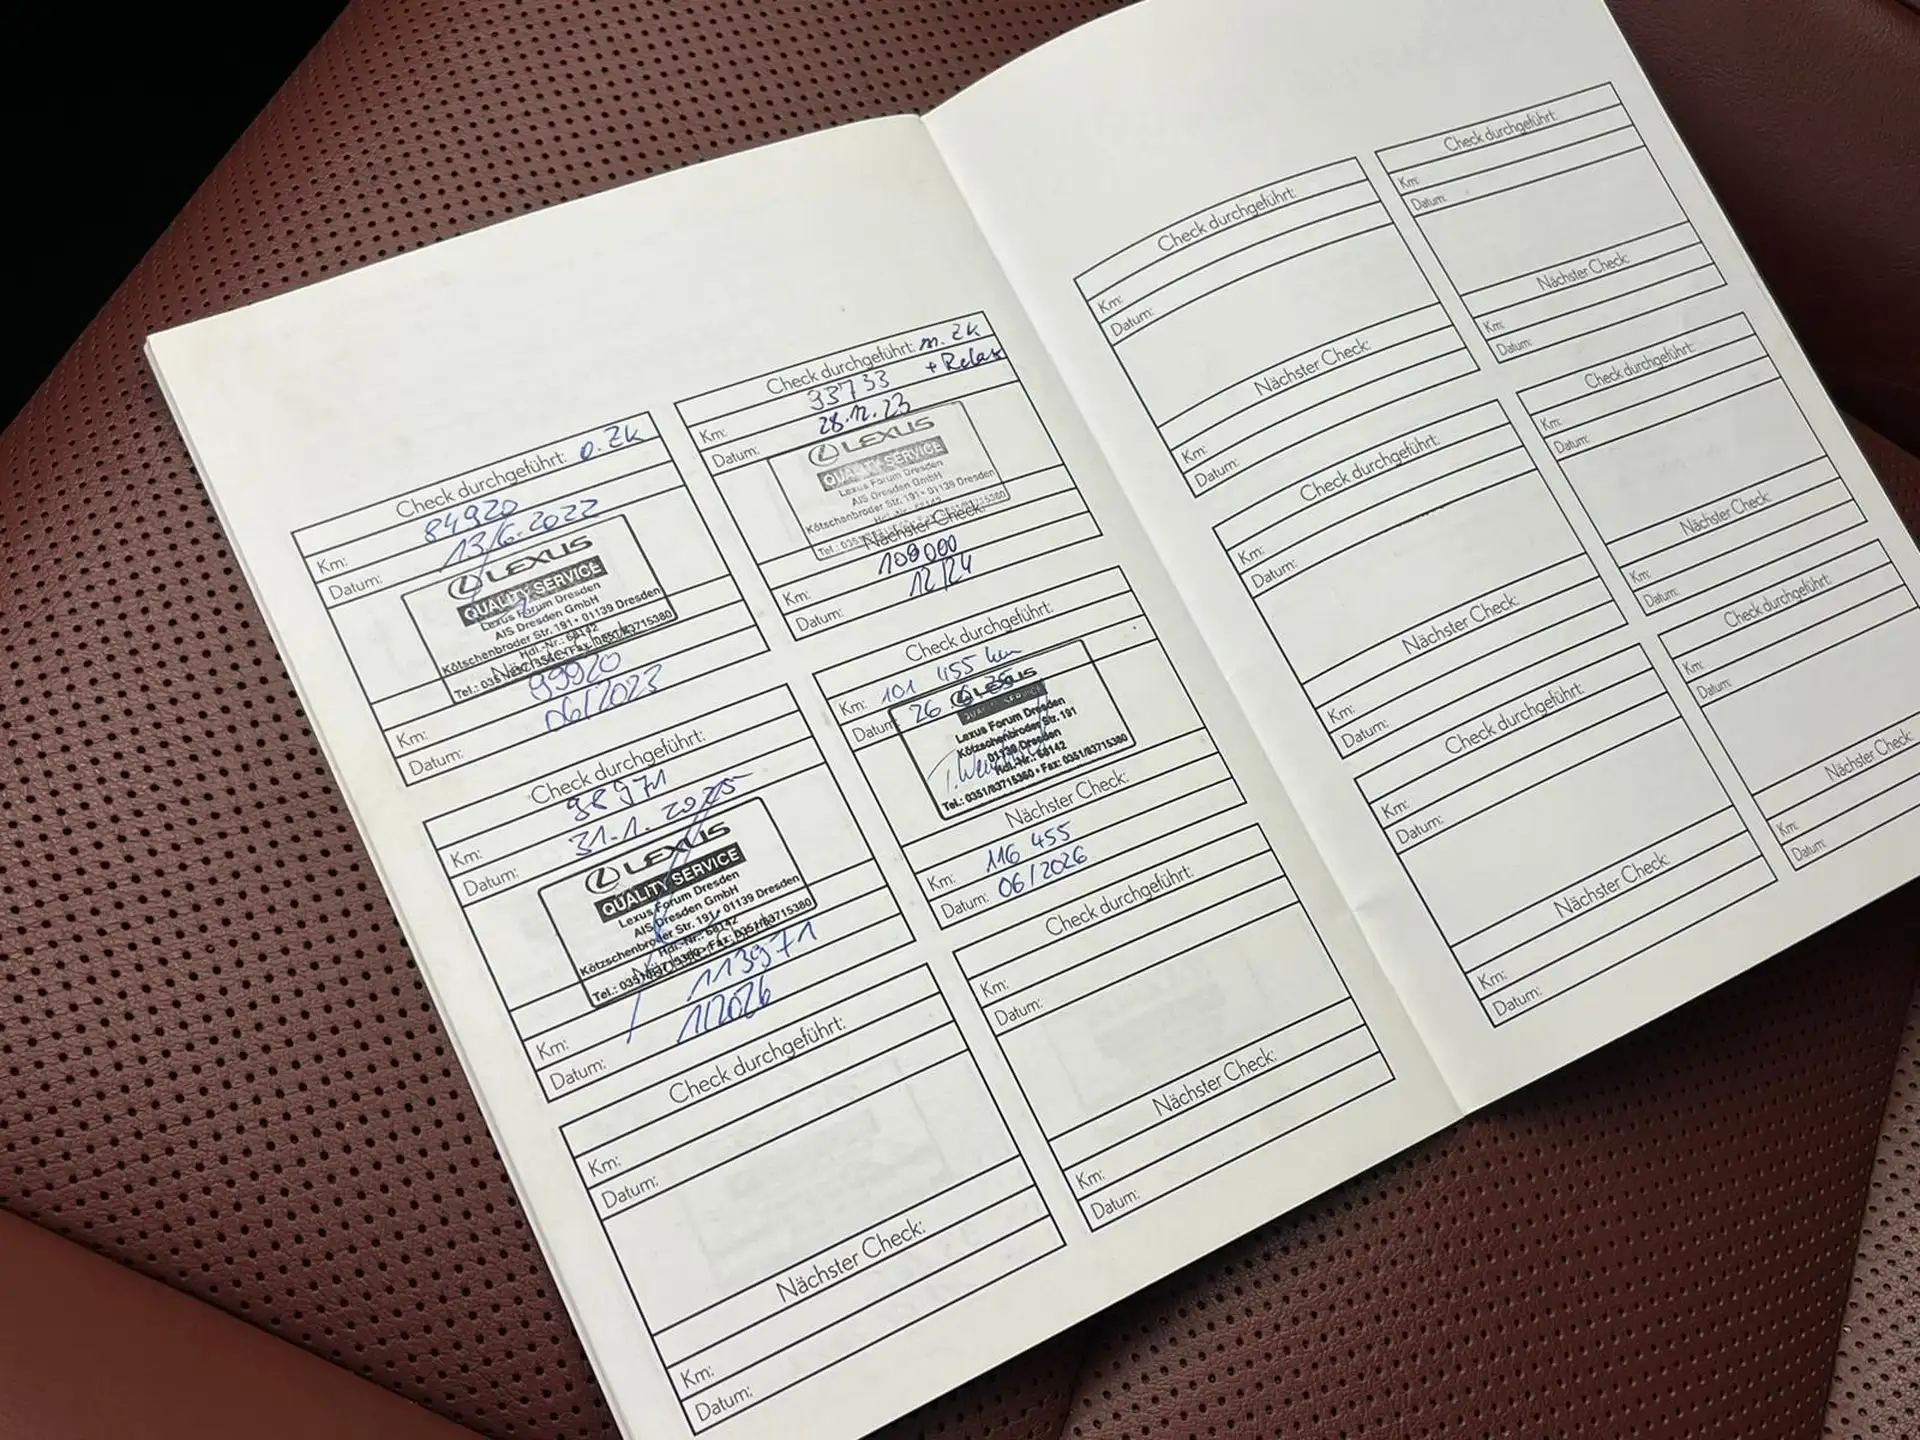 Check durchgeführt: o. ZK
Km: 84920
Datum: 13/6.2022
LEXUS
QUALITY SERVICE
Lexus Forum Dresden
AIS Dresden GmbH
Kötschenbroder Str. 191 • 01139 Dresden
Hdl.-Nr.: 68142
Km: 99920
Datum: 06/2023
Check durchgeführt: m. ZK
+ Relax
Km:
Datum: 28.12.23
LEXUS
QUALITY SERVICE
Lexus Forum Dresden
AIS Dresden GmbH
Kötschenbroder Str. 191 • 01139 Dresden
Hdl.-Nr.: 68142
Nächster Check:
Km: 109000
Datum: 12/24
Check durchgeführt:
Km: 98971
Datum: 31.1.2025
LEXUS
QUALITY SERVICE
Lexus Forum Dresden
AIS Dresden GmbH
Kötzschenbroder Str. 191 • 01139 Dresden
Hdl.-Nr.: 68142
Tel.: 0351/83715360 • Fax: 0351/83715380
Km: 113971
Datum: 1/2026
Check durchgeführt:
Km: 101 455 km
Datum: 26
LEXUS
QUALITY SERVICE
Lexus Forum Dresden
Kötzschenbroder Str. 191
01139 Dresden
Hdl.-Nr.: 68142
Tel.: 0351/83715360 • Fax: 0351/83715380
Nächster Check:
Km: 116 455
Datum: 06/2026
Check durchgeführt:
Km:
Datum:
Nächster Check:
Km:
Datum:
Check durchgeführt:
Km:
Datum:
Nächster Check:
Km:
Datum:
Check durchgeführt:
Km:
Datum:
Nächster Check:
Km:
Datum:
Check durchgeführt:
Km:
Datum:
Nächster Check:
Km:
Datum:
Check durchgeführt:
Km:
Datum:
Nächster Check:
Km:
Datum:
Check durchgeführt:
Km:
Datum:
Nächster Check:
Km:
Datum:
Check durchgeführt:
Km:
Datum:
Nächster Check:
Km:
Datum:
Check durchgeführt:
Km:
Datum:
Nächster Check:
Km:
Datum: